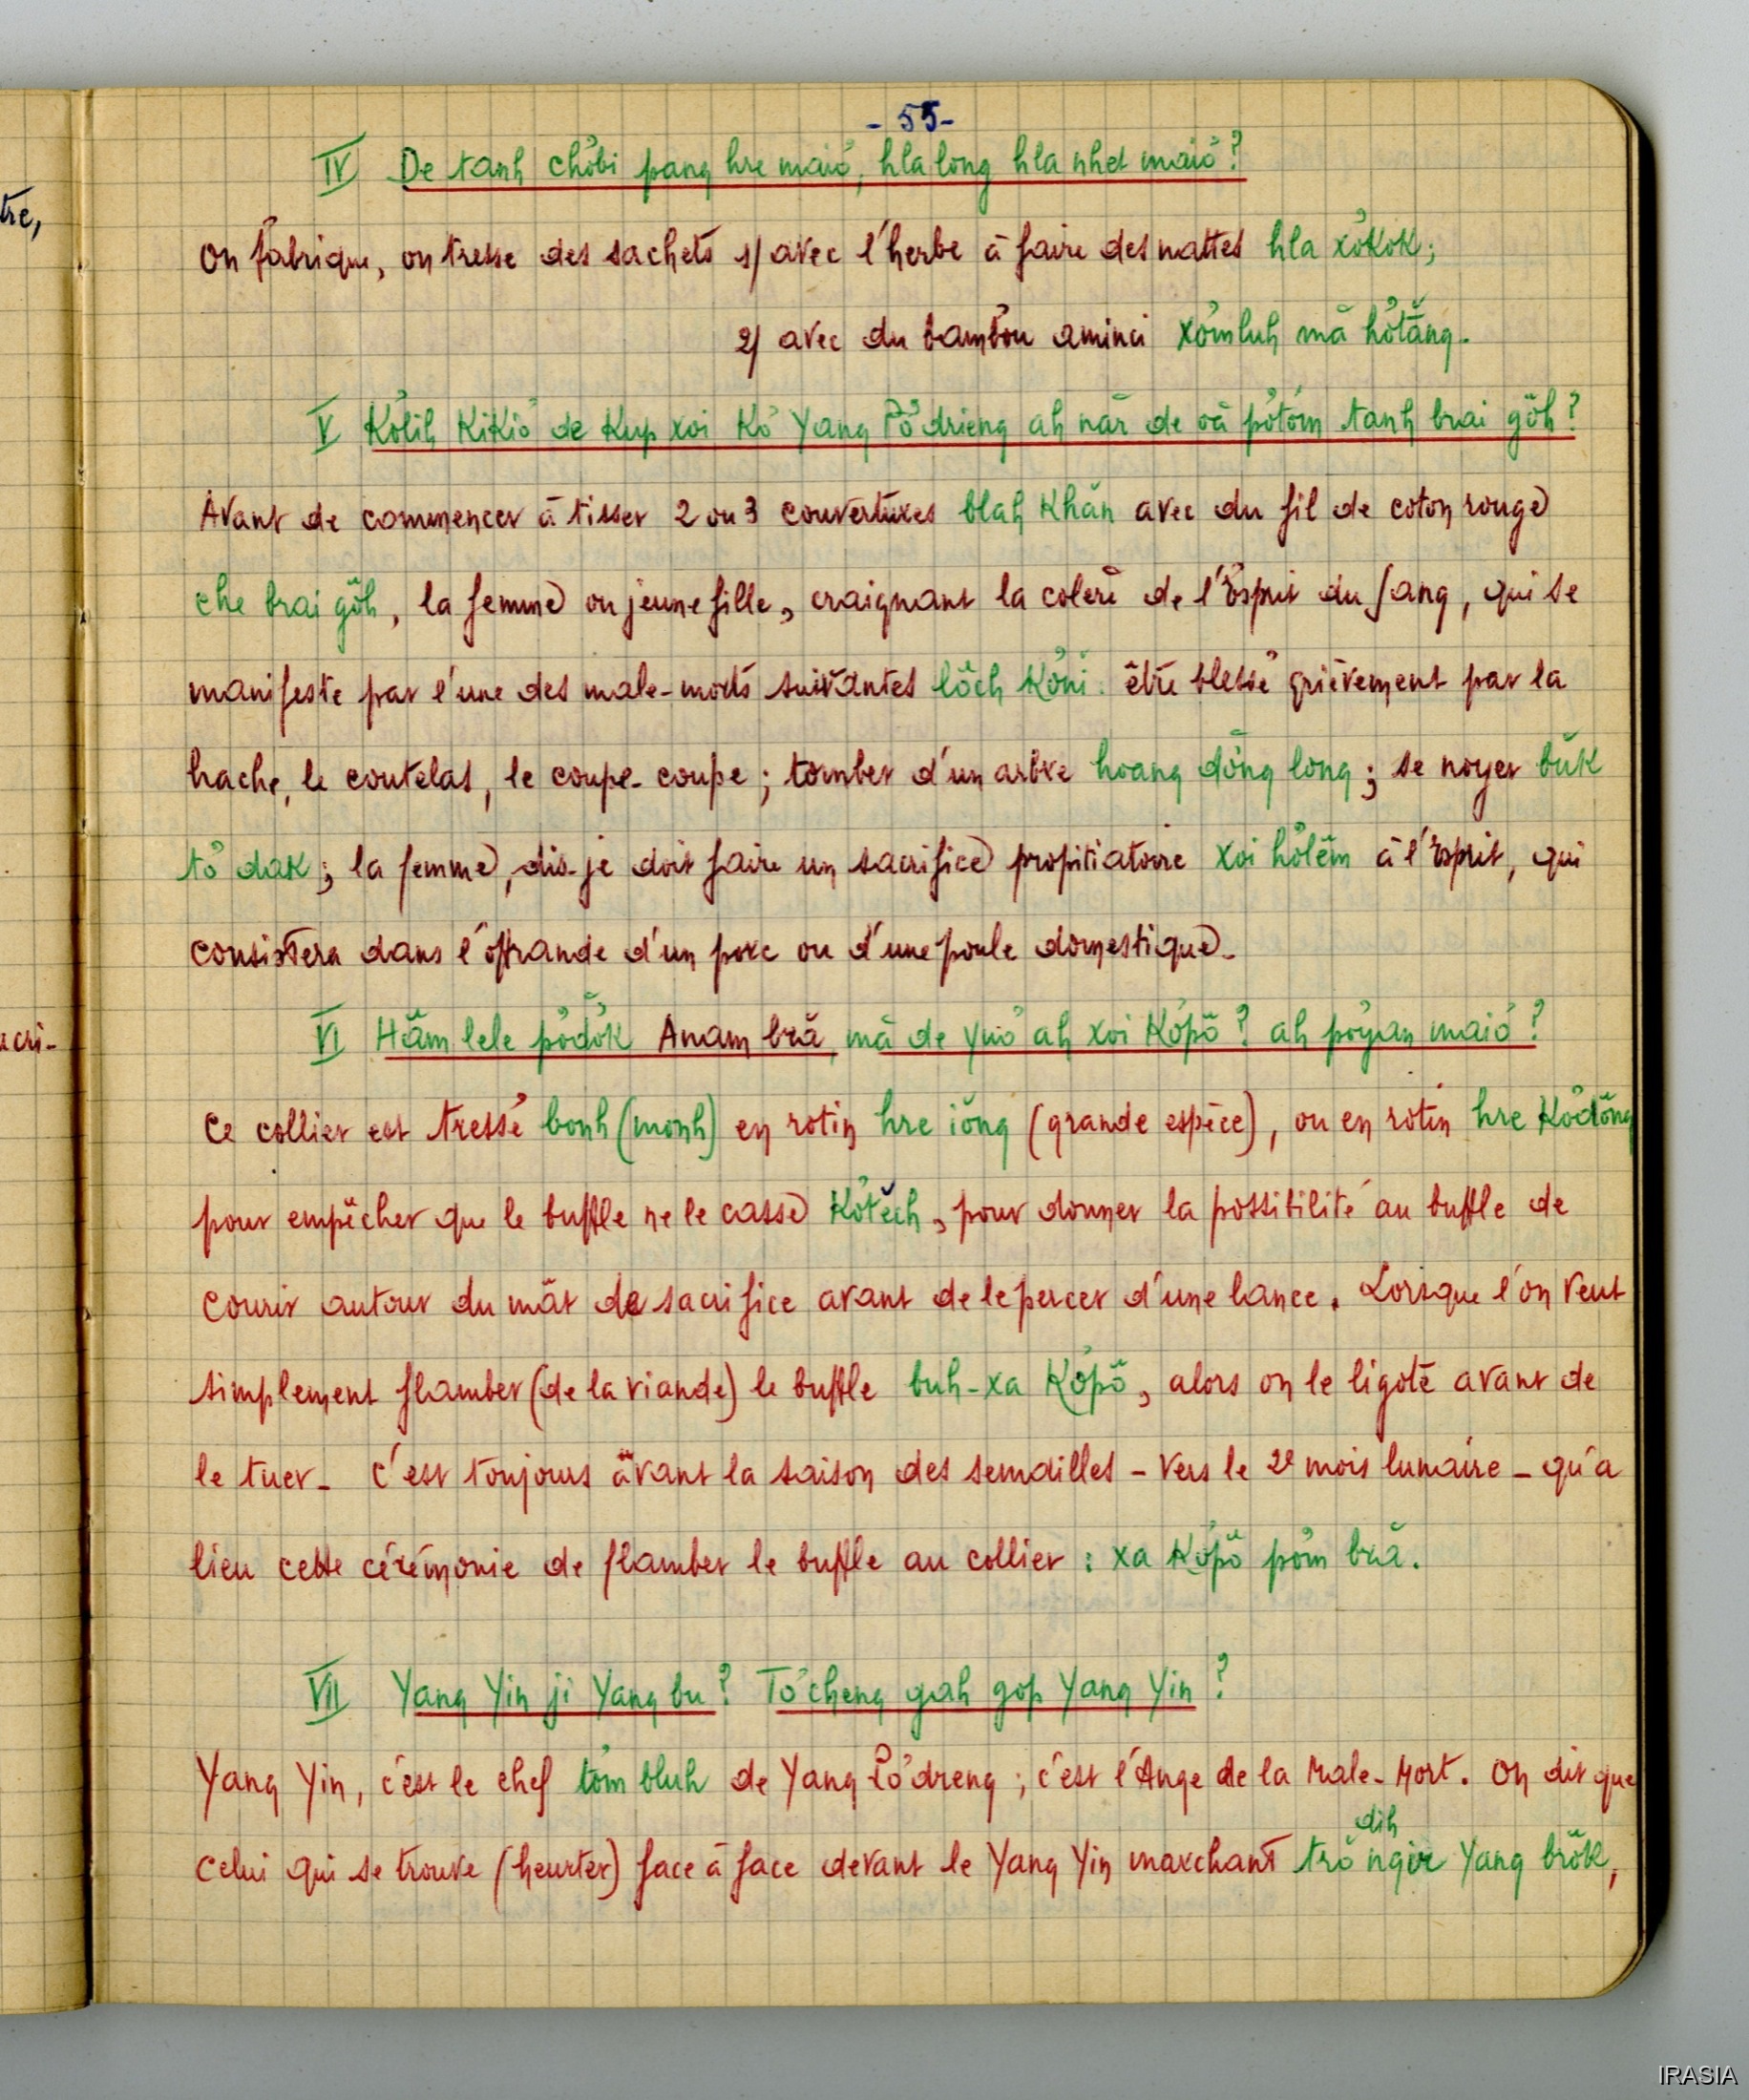 - 55 -
IV De tanh chơbi pang hre maiơ, hla long hla nhet maiơ?
tre,
On fabrique, on tresse des sachets 1/ avec l'herbe à faire des nattes hla xơkok;
2/ avec du bambou aminci xơmluh mă hơtăng.
V Kơlih kikiơ de kup xoi kơ Yang Pơdrieng ah năr de oă pơtơm tanh brai gŏh?
Avant de commencer à tisser 2 ou 3 couvertures blah khăn avec du fil de coton rouge
che brai gŏh, la femme ou jeune fille, craignant la colère de l'Esprit du Sang, qui se
manifeste par l'une des male-morts suivantes lŏch kơni: être blessé grièvement par la
hache, le coutelas, le coupe-coupe; tomber d'un arbre hoang dơ̆ng long; se noyer bŭk
tơ dak; la femme, dis-je doit faire un sacrifice propitiatoire xoi hơlĕm à l'Esprit, qui
consistera dans l'offrande d'un porc ou d'une poule domestique.
acri-
VI Hăm lele pơdơ̆k Anam bră, mă de ynơ ah xoi kơpŏ? ah pơyan maiơ?
Ce collier est tressé bonh (monh) en rotin hre iŏng (grande espèce), ou en rotin hre kơdŏng
pour empêcher que le buffle ne le casse kơtĕch, pour donner la possibilité au buffle de
courir autour du mât de sacrifice avant de le percer d'une lance. Lorsque l'on veut
simplement flamber (de la viande) le buffle buh-xa kơpŏ, alors on le ligote avant de
le tuer. C'est toujours avant la saison des semailles - vers le 2e mois lunaire - qu'a
lieu cette cérémonie de flamber le buffle au collier: xa kơpŏ pơm bră.
VII Yang Yin ji Yang bu? Tơ cheng gah gop Yang Yin?
Yang Yin, c'est le chef tơm bluh de Yang Pơdreng; c'est l'Ange de la Male-Mort. On dit que
dih
celui qui se trouve (heurter) face à face devant le Yang Yin marchant trŏ ngir Yang brŏk,
IRASIA